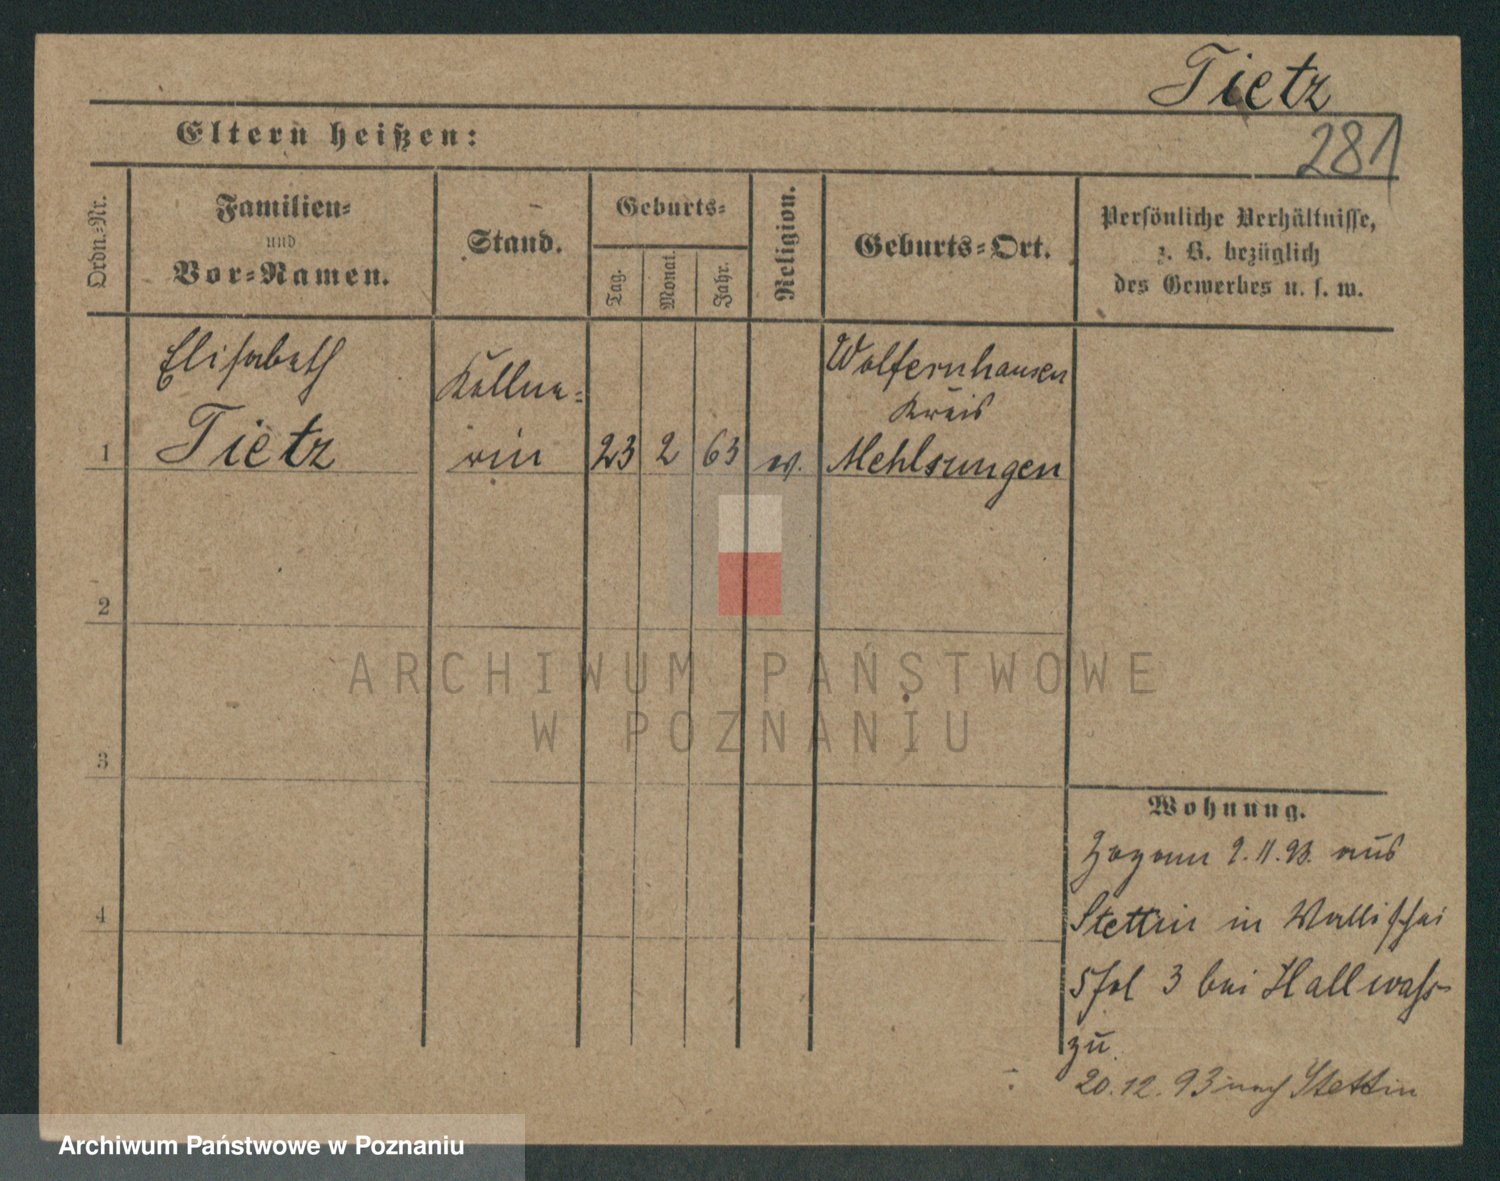 Tietz
281
Eltern heißen:
Ordn.=Nr.
Familien=
und
Vor=Namen.
Stand.
Geburts=
Tag.
Monat.
Jahr.
Religion.
Geburts=Ort.
Persönliche Verhältnisse,
z. B. bezüglich
des Gewerbes u. s. w.
1
Elisabeth
Tietz
Kellne=
rin
23
2
63
ev.
Wolfernhausen
Kreis
Mehlsungen
2
3
4
Wohnung.
Zezogen 9.11.93. aus
Stettin in Wallischei
3 bei Hallwahs
zu
20.12.93 nach Stettin
ARCHIWUM PAŃSTWOWE
W POZNANIU
Archiwum Państwowe w Poznaniu